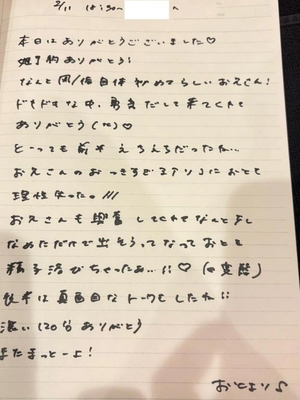 2/11 13:50〜 へ
本日はありがとうございました♡
姫予約ありがとう!
なんと風/俗自体初めてらしいお兄さん!
ドキドキな中、勇気だして来てくれて
ありがとう
とーっても えちえちだったね…
お兄さんのおっきすぎる におとと
理性失った。///
お兄さんも興奮してくれてなんと
なめただけで出そうってなって おとと
精子浴びちゃったぁ…!!♡(変態)
後半は真面目なトークもしたね!!
濃い120分ありがとう
またまっとーよ!
おとより♪